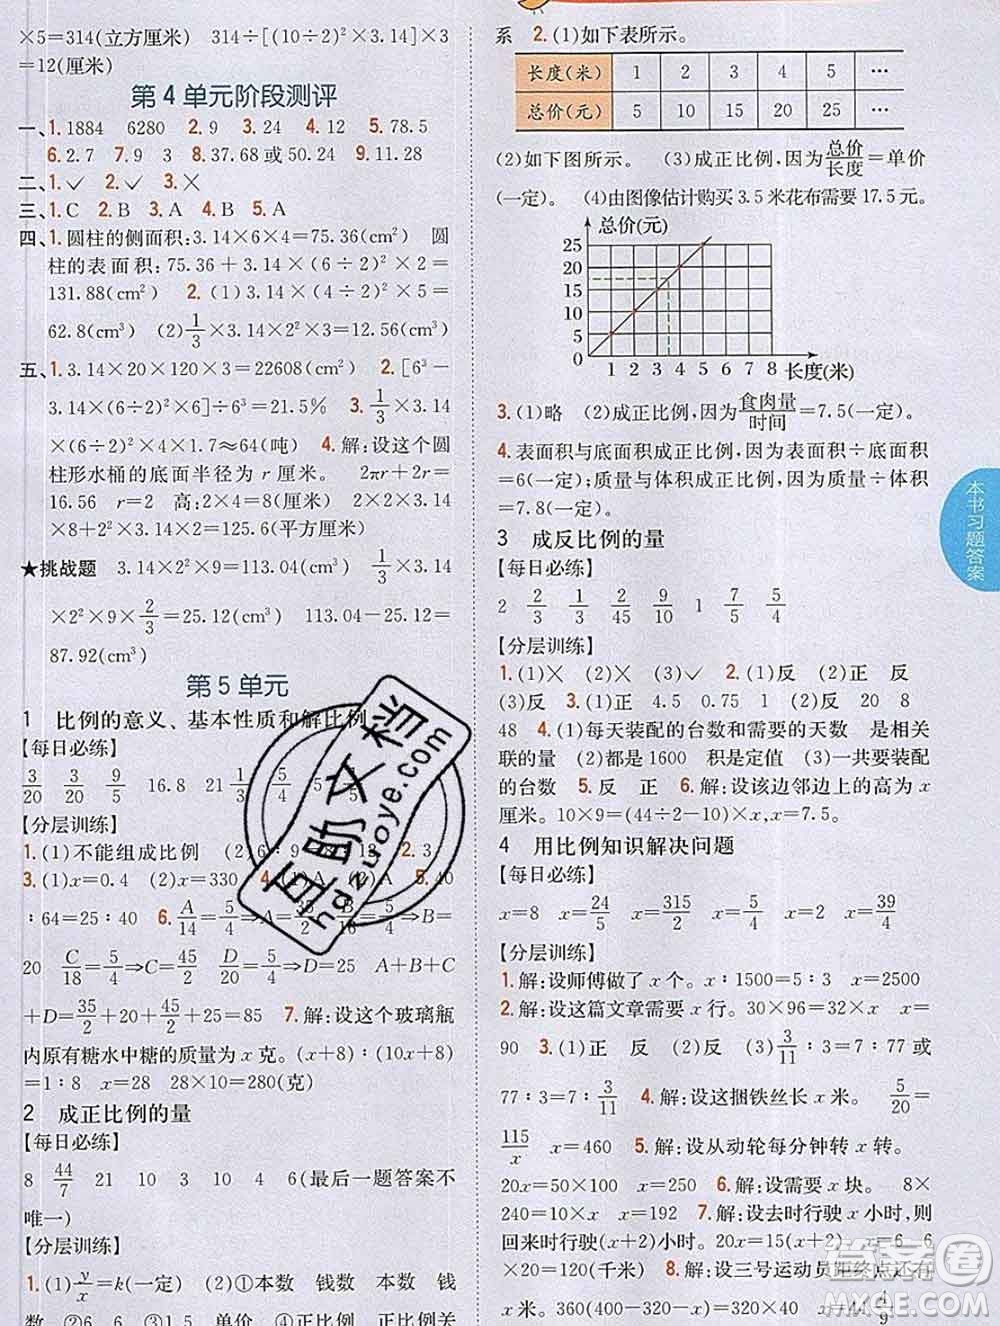 ×5=314(立方厘米) 314÷[(10÷2)²×3.14]×3
=12(厘米)
第4单元阶段测评
一、1.1884 6280 2.9 3.24 4.12 5.78.5
6.2.7 7.9 3 8.37.68或50.24 9.11.28
二、1.✓ 2.✓ 3.×
三、1.C 2.B 3.A 4.B 5.A
四、1.圆柱的侧面积:3.14×6×4=75.36(cm²) 圆
柱的表面积:75.36+3.14×(6÷2)²×2=
131.88(cm²) 2.(1)3.14×(4÷2)²×5=
62.8(cm³) (2)1/3×3.14×2²×3=12.56(cm³)
五、1.3.14×20×120×3=22608(cm²) 2.[6³-
3.14×(6÷2)²×6]÷6³=21.5% 3.1/3×3.14
×(6÷2)²×4×1.7≈64(吨) 4.解:设这个圆
柱形水桶的底面半径为r厘米。 2πr+2r=
16.56 r=2 高:2×4=8(厘米) 2×2×3.14
×8+2²×3.14×2=125.6(平方厘米)
★挑战题 3.14×2²×9=113.04(cm³) 1/3×3.14
×2²×9×2/3=25.12(cm³) 113.04-25.12=
87.92(cm³)
第5单元
1 比例的意义、基本性质和解比例
【每日必练】
3/20 3/20 9/5 16.8 21
【分层训练】
1.(1)不能组成比例 2.3
3.(1)x=0.4 (2)x=330 5.40
:64=25:40 6.A/14=5/4→A=35/2 →B=
20 C/18=5/4→C=45/2 D/20=5/4→D=25 A+B+C
+D=35/2+20+45/2+25=85 7.解:设这个玻璃瓶
内原有糖水中糖的质量为x克。 (x+8):(10x+8)
=1:8 x=28 28×10=280(克)
2 成正比例的量
【每日必练】
8 44/7 21 10 3 10 4 6(最后一题答案不
唯一)
【分层训练】
1.(1)y/x=k(一定) (2)①本数 钱数 本数 钱
数 ②6 6 6 总价 单价 数量 正比例 关
系 2.(1)如下表所示。
长度(米) 1 2 3 4 5 …
总价(元) 5 10 15 20 25 …
(2)如下图所示。 (3)成正比例,因为总价/长度=单价
(一定)。 (4)由图像估计购买3.5米花布需要17.5元。
总价(元)
25
20
15
10
5
0 1 2 3 4 5 6 7 8 长度(米)
3.(1)略 (2)成正比例,因为食肉量/时间=7.5(一定)。
4.表面积与底面积成正比例,因为表面积÷底面积
=6(一定);质量与体积成正比例,因为质量÷体积=
7.8(一定)。
3 成反比例的量
【每日必练】
2 2/3 1/3 2/45 9/10 1 7/5 5/14
【分层训练】
1.(1)× (2)× (3)✓ 2.(1)反 (2)正 反
(3)反 3.(1)正 4.5 0.75 1 (2)反 20 8
48 4.(1)每天装配的台数和需要的天数 是相关
联的量 (2)都是1600 积是定值 (3)一共要装配
的台数 5.反 正 6.解:设该边邻边上的高为x
厘米。 10×9=(44÷2-10)×x x=7.5
4 用比例知识解决问题
【每日必练】
x=8 x=24/5 x=315/2 x=2 x=39/4
【分层训练】
1.解:设师傅做了x个。 x:1500=5:3 x=2500
2.解:设这篇文章需要x行。 30×96=32x x=
90 3.(1)正 反 (2)反 (3)3/11:3=7:77或
77:3=7:3/11 4.解:设这捆铁丝长x米。 5/20=
115/x x=460 5.解:设从动轮每分钟转x转。
20x=50×100 x=250 6.解:设需要x块。 8×
240=10×x x=192 7.解:设去时行驶x小时,则
回来时行驶 小时。 x=6 6
×20=120(千米) 8.解:设三号运动员距终点还有
x米。 360(400-320-x) x=44 4/9
本书习题答案
互助文档
hdzuoye.com
答案圈
MXQE.COM